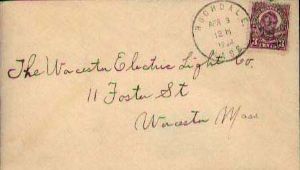 ROCHDALE
APR 3
12 M
MASS.
The Worcester Electric Light Co.
11 Foster St
Worcester Mass